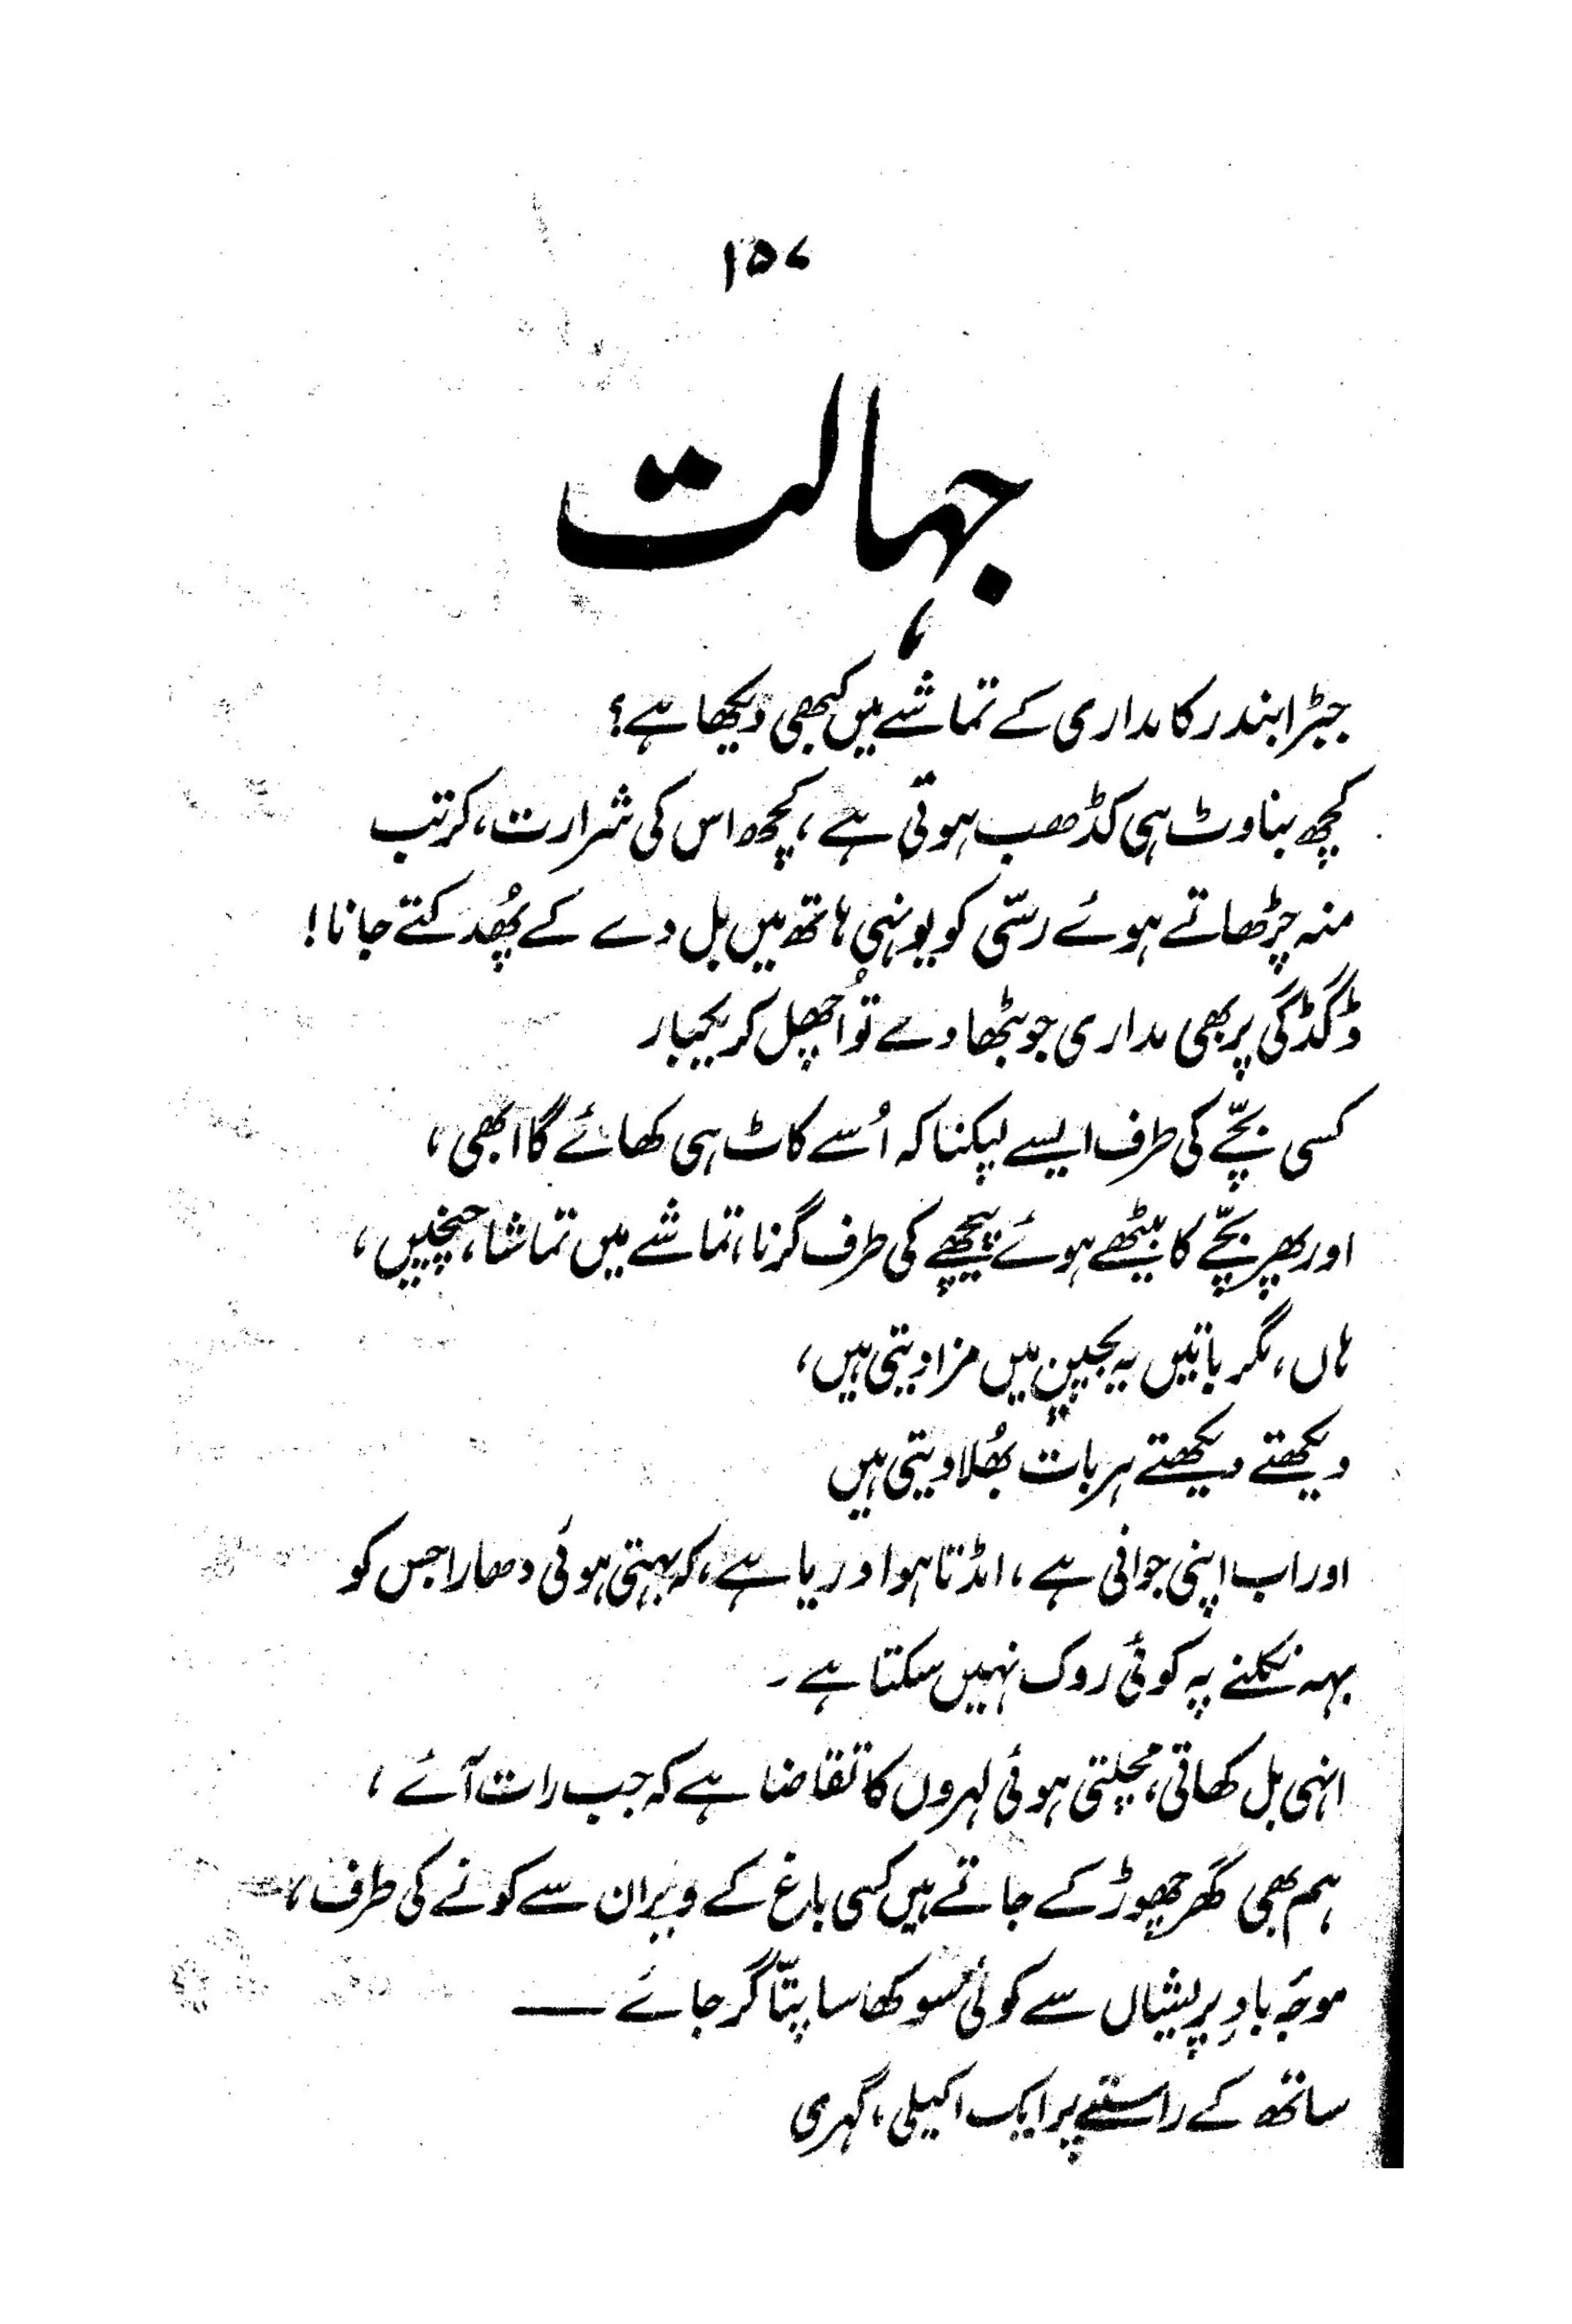 ۱۵۷
جہالت
جبڑا بندر کا مداری کے تماشے میں کبھی دیکھا ہے؟
کچھ بناوٹ ہی کڈھب ہوتی ہے، کچھ اس کی شرارت، کرتب
منہ چڑھاتے ہوئے رسّی کو یونہی ہاتھ میں بل دے کے پھُدکتے جانا!
ڈگڈگی پر بھی مداری جو بٹھا دے تو اُچھل کر یکبار
کسی بچّے کی طرف ایسے لپکنا کہ اُسے کاٹ ہی کھائے گا ابھی،
اور پھر بچّے کا بیٹھے ہوئے پیچھے کی طرف گرنا، تماشے میں تماشا، چیخیں،
ہاں، مگر باتیں یہ بچپن میں مزا دیتی ہیں،
دیکھتے دیکھتے ہر بات بھُلا دیتی ہیں
اور اب اپنی جوانی ہے، امڈتا ہوا دریا ہے، کہ بہتی ہوئی دھارا جس کو
بہہ نکلنے پہ کوئی روک نہیں سکتا ہے۔
انہی بل کھاتی، مچلتی ہوئی لہروں کا تقاضا ہے کہ جب رات آئے،
ہم بھی گھر چھوڑ کے جاتے ہیں کسی باغ کے ویران سے کونے کی طرف،
موجۂ بادِ پریشاں سے کوئی سُوکھا سا پتّا گر جائے ——
ساتھ کے راستے پر ایک اکیلی، گہری